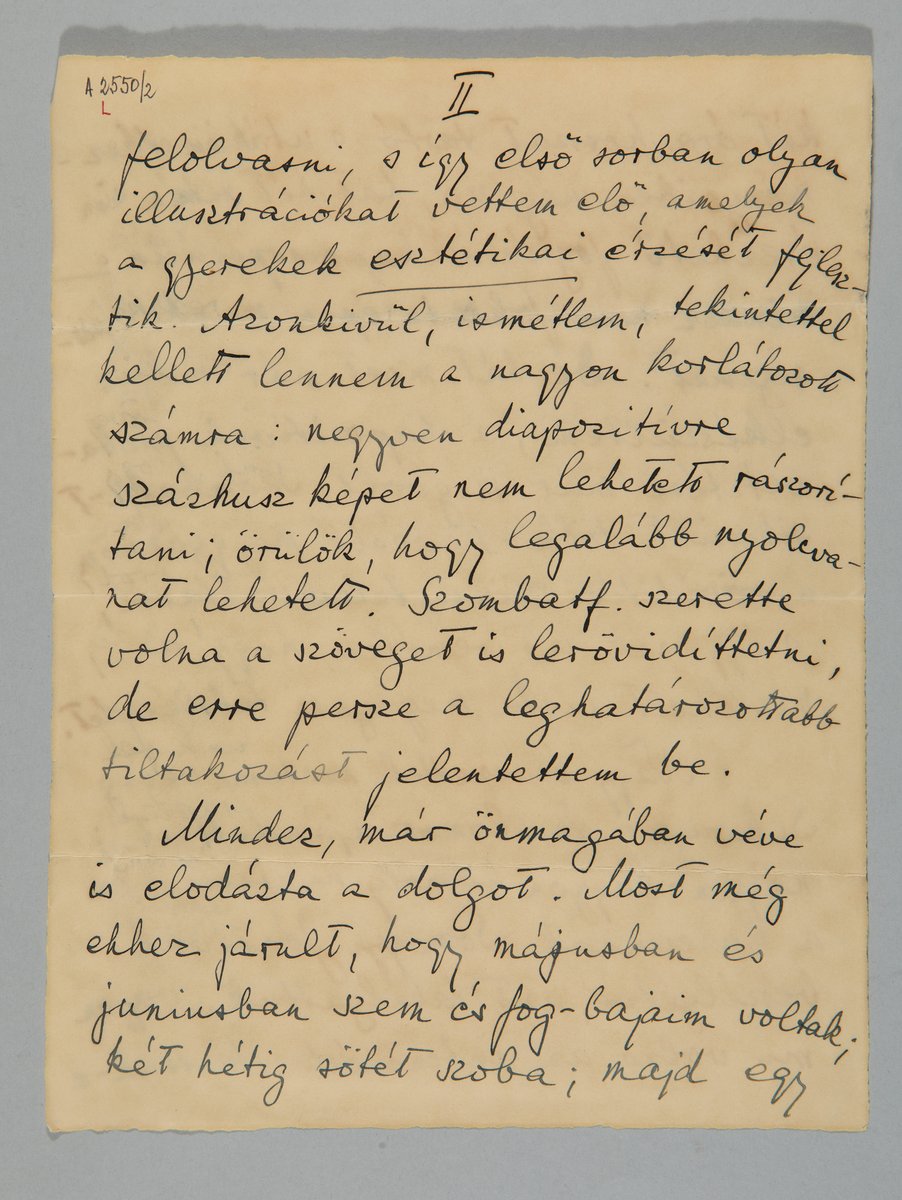 A 2550/2
L
II
felolvasni, s így első sorban olyan
illusztrációkat vettem elő, amelyek
a gyerekek esztétikai érzését fejlesz-
tik. Azonkivül, ismétlem, tekintettel
kellett lennem a nagyon korlátozott
számra : negyven diapozitívre
százhusz képet nem lehetett rászorí-
tani ; örülök, hogy legalább nyolcva-
nat lehetett. Szombatf. szerette
volna a szöveget is lerövidíttetni,
de erre persze a leghatározottabb
tiltakozást jelentettem be.
Mindez, már önmagában véve
is elodázta a dolgot. Most még
ehhez járult, hogy májusban és
juniusban szem és fog-bajaim voltak ;
két hétig sötét szoba ; majd egy